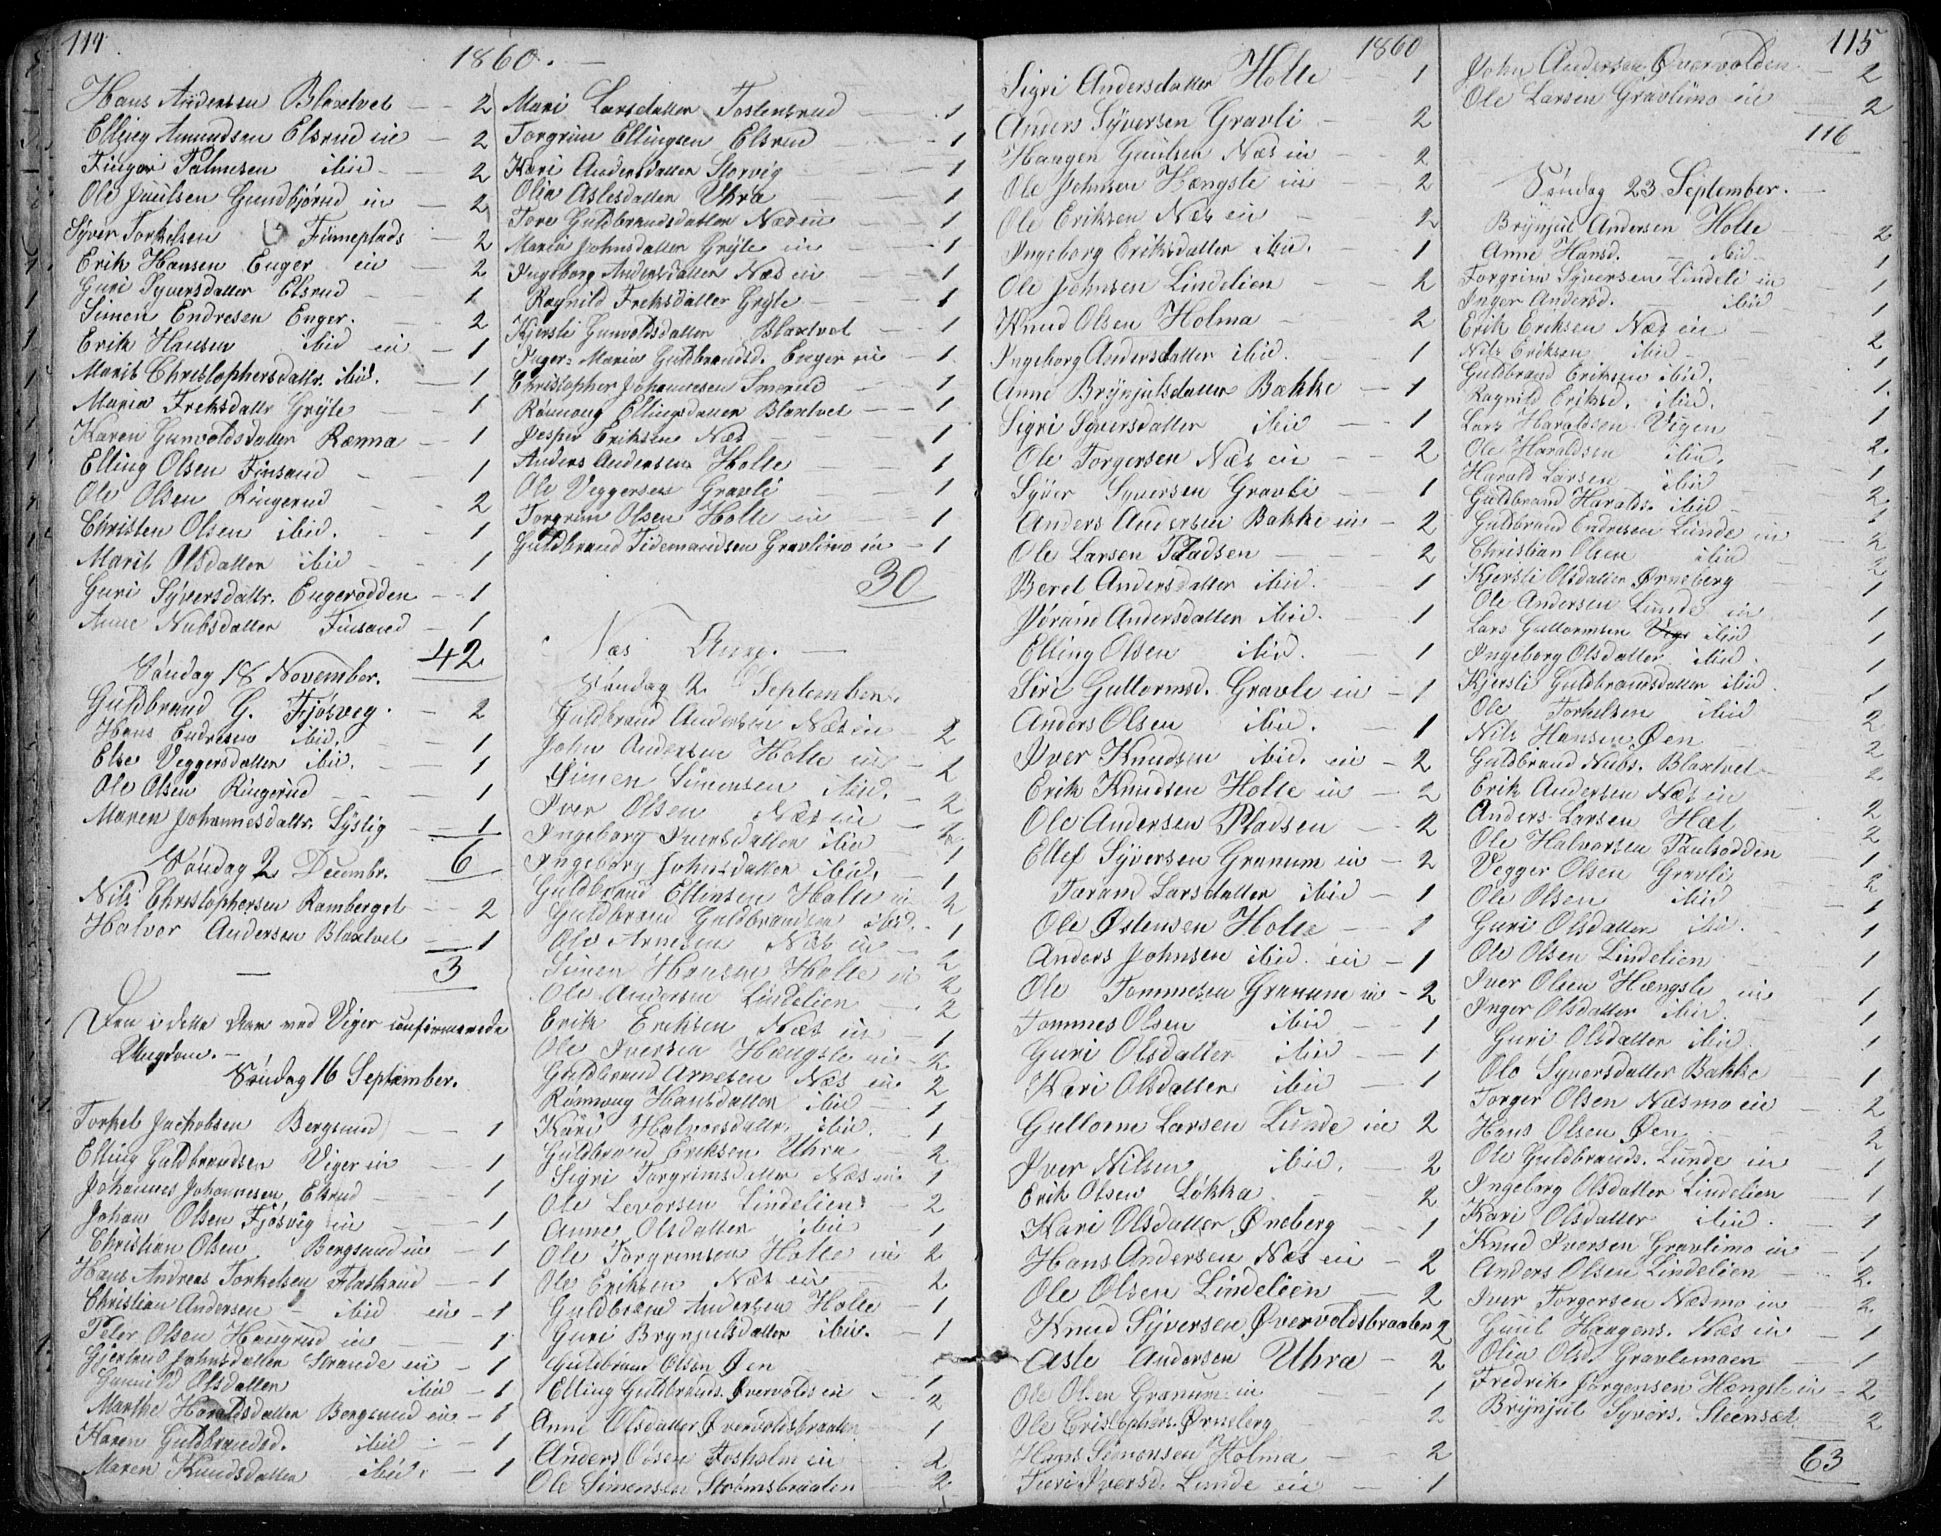 114.
1860. —
Hans Andersen Blaxtvet — 2
Elling Amundsen Elsrud ein — 2
Finger Palmesen ibid — 2
Ole Paulsen Gundbjörud ein — 2
Syver Torkelsen Finneplads — 2
Erik Hansen Enger ein — 2
Guri Syversdatter Elsrud — 1
Simen Endresen Enger. — 2
Erik Hansen ibid ein — 1
Marit Christophersdattr. ibid. — 1
Maria Freksdattr Gryte — 1
Karen Gunvoldsdatter Rænna — 1
Elling Olsen Finsand — 1
Ole Olsen Ringerud — 2
Christen Olsen ibid. — 1
Marit Olsdatter ibid — 1
Guri Syversdattr. Engerodden — 1
Anne Nubsdatter Finsand — 1
42
Søndag 18 November.
Guldbrand G. Fjösveg. — 2
Hans Endresen ibid. — 1
Else Veggersdatter ibid. — 1
Ole Olsen Ringerud — 1
Maren Johannesdattr. Systig — 1
6
Søndag 2 Decembr.
Nils Christophersen Ramberget — 2
Halvor Andersen Blaxtvet — 1
3
Den i dette Aar ved Viger confirmerede
Ungdom. —
Søndag 16 September.
Torkel Jachobsen Bergsund — 1
Elling Guldbrandsen Viger ein — 1
Johannes Johannesen Elsrud — 1
Johan Olsen Fjösvig ein — 1
Christian Olsen Bergsund ein — 1
Hans Andreas Torkelsen Flaskrud — 1
Christian Andersen — ibid ein — 1
Peter Olsen Haugrud ein — 1
Gjertrud Johnsdatter Strande ein — 1
Gunild Olsdatter ibid — 1
Marthe Haraldsdatter Bergsund ein — 1
Karen Guldbrandsd. ibid — 1
Maren Knudsdatter ibid. — 1
Mari Larsdatter Tostensrud — 1
Torgrim Ellingsen Elsrud — 1
Kari Andersdatter Storvig — 1
Olia Aslesdatter Uhra — 1
Tore Guldbrandsdatter Næs ein — 1
Maria Johnsdatter Gryte ein — 1
Ingeborg Andersdatter Næs ein — 1
Ragnild Freksdatter Gryte — 1
Kjersti Gunvoldsdatter Blaxtvet — 1
Inger Maria Guldbrandsd. Enger ein — 1
Christopher Johannesen Smerud — 1
Rönnoug Ellingsdatter Blaxtvet — 1
Jesper Eriksen Næs — 1
Anders Andersen Holte — 1
Ole Veggersen Gravli — 1
Torgrim Olsen Holte ein — 1
Guldbrand Tidemandsen Gravlimo ein — 1
30
Næs Anx. —
Søndag 2 September.
Guldbrand Andersen Næs ein 2
John Andersen Holte ein — 2
Simen Simensen ibid. — 2
Iver Olsen Næs ein — 2
Ingeborg Iversdatter ibid — 1
Ingeborg Johnsdatter ibid. — 1
Guldbrand Ellinsen Holte ein 2
Guldbrand Guldbrandsen ibid. — 1
Ole Arnesen Næs ein — 2
Simen Hansen Holte ein 2
Ole Andersen Lindelien — 2
Erik Eriksen Næs ein — 1
Ole Iversen Hængsle ein — 2
Guldbrand Arnesen Næs ein 2
Rönnoug Hansdatter ibid — 1
Kari Halvorsdattr. ibid. — 1
Guldbrand Eriksen Uhra — 2
Sigri Torgrimsdatter Næs ein 1
Ole Levorsen Lindelien — 2
Anne Olsdatter ibid 1
Ole Torgrimsen Holte ein 2
Ole Eriksen Næs ein — 2
Guldbrand Andersen Holte — 1
Guri Brynjulsdatter ibid. — 1
Guldbrand Olsen Øen — 1
Elling Guldbrands. Øvervolds ein — 2
Anne Olsdatter Øvervoldsbraaten 1
Anders Olsen Fosholm ein — 2
Ole Simensen Strømsbraaten — 2
1860
115
Sigri Andersdatter Holte 1
Anders Syversen Gravli — 2
Haagen Gaulsen Næs ein — 2
Ole Johnsen Hængsle ein — 2
Ole Eriksen Næs ein — 2
Ingeborg Eriksdatter ibid. — 1
Ole Johnsen Lindelien — 2
Knud Olsen Holma — 2
Ingeborg Andersdatter ibid. 1
Anne Brynjulsdatter Bakke — 1
Sigri Syversdatter ibid — 1
Ole Torgersen Næs ein — 2
Syver Syversen Gravli — 1
Anders Andersen Bakke ein — 2
Ole Larsen Pladsen — 2
Beret Andersdatter ibid. — 1
Jöran Andersdatter ibid. — 1
Elling Olsen ibid. — 1
Siri Guttormsd. Gravli ein — 1
Anders Olsen ibid. — 1
Iver Knudsen ibid. ein — 2
Erik Knudsen Holte ein — 2
Ole Andersen Pladsen — 2
Ellef Syversen Granum ein — 2
Taran Larsdatter ibid — 1
Ole Østensen Holte — 1
Anders Johnsen ibid. ein — 1
Ole Tommesen Granum ein — 2
Tommes Olsen ibid — 1
Guri Olsdatter ibid — 1
Kari Olsdatter ibid — 1
Guttorm Larsen Lunde ein 2
Iver Nilsen ibid. — 2
Erik Olsen Lökka — 2
Kari Olsdatter Øneberg — 1
Hans Andersen Næs ein — 2
Ole Olsen Lindelien 2
Knud Syversen Øvervoldsbraaten 2
Asle Andersen Uhra — 2
Ole Olsen Granum ein 1
Ole Cristophers. Ørneberg — 2
Hans Simonsen Holma — 2
Turi Iversd. Lunde ein — 1
John Andersen Øvervolden — 2
Ole Larsen Gravlimo ein — 2
116
Søndag 23 September. —
Brynjul Andersen Holte — 2
Anne Hansd. — ibid — 1
Torgrim Syversen Lindeli ein — 1
Inger Andersd. ibid — 1
Erik Eriksen Næs ein — 2
Nils Eriksen ibid — 1
Guldbrand Eriksen ibid. 1.
Ragnild Eriksd. ibid. 1
Lars Haraldsen Vigen — 2
Ole Haraldsen ibid. — 1
Harald Larsen — ibid — 2
Guldbrand Haralds. ibid — 1
Guldbrand Endresen Lunde ein — 2
Christian Olsen ibid — 2
Kjersti Olsdatter Ørneberg 1
Ole Andersen Lunde ein 1
Lars Guttormsen ibid 1
Ingeborg Olsdatter ibid. 1
Kjersti Guldbrandsdatter ibid. 1
Ole Torkelsen ibid 2
Nils Hansen Øen 2
Guldbrand Nubs. Blaxtvet 2
Erik Andersen Næs ein 2
Anders Larsen Hæt 2
Ole Halvorsen Paulsodden 1
Vegger Olsen Gravli 2
Ole Olsen ibid 1
Guri Olsdatter ibid. 1
Ole Olsen Lindelien 1
Iver Olsen Hængsle ein — 1
Inger Olsdatter ibid. 1
Guri Olsdatter ibid. 1
Ole Syversdatter Bakke 1
Torger Olsen Næsmo ein — 2
Hans Olsen Øen — 2
Ole Guldbrands. Lunde ein — 1
Ingeborg Olsdatter Lindelien — 1
Kari Olsdatter ibid. — 1
Knud Iversen Gravlimo ein — 1
Anders Olsen Lindelien — 2.
Iver Torgersen Næsmo ein — 2
Gaul Haagens. Næs ein — 1
Olia Olsd. Gravlimoen — 1
Fredrik Jørgensen Hængsle ein — 2
Brynjul Syvers. Steensæt 2
63